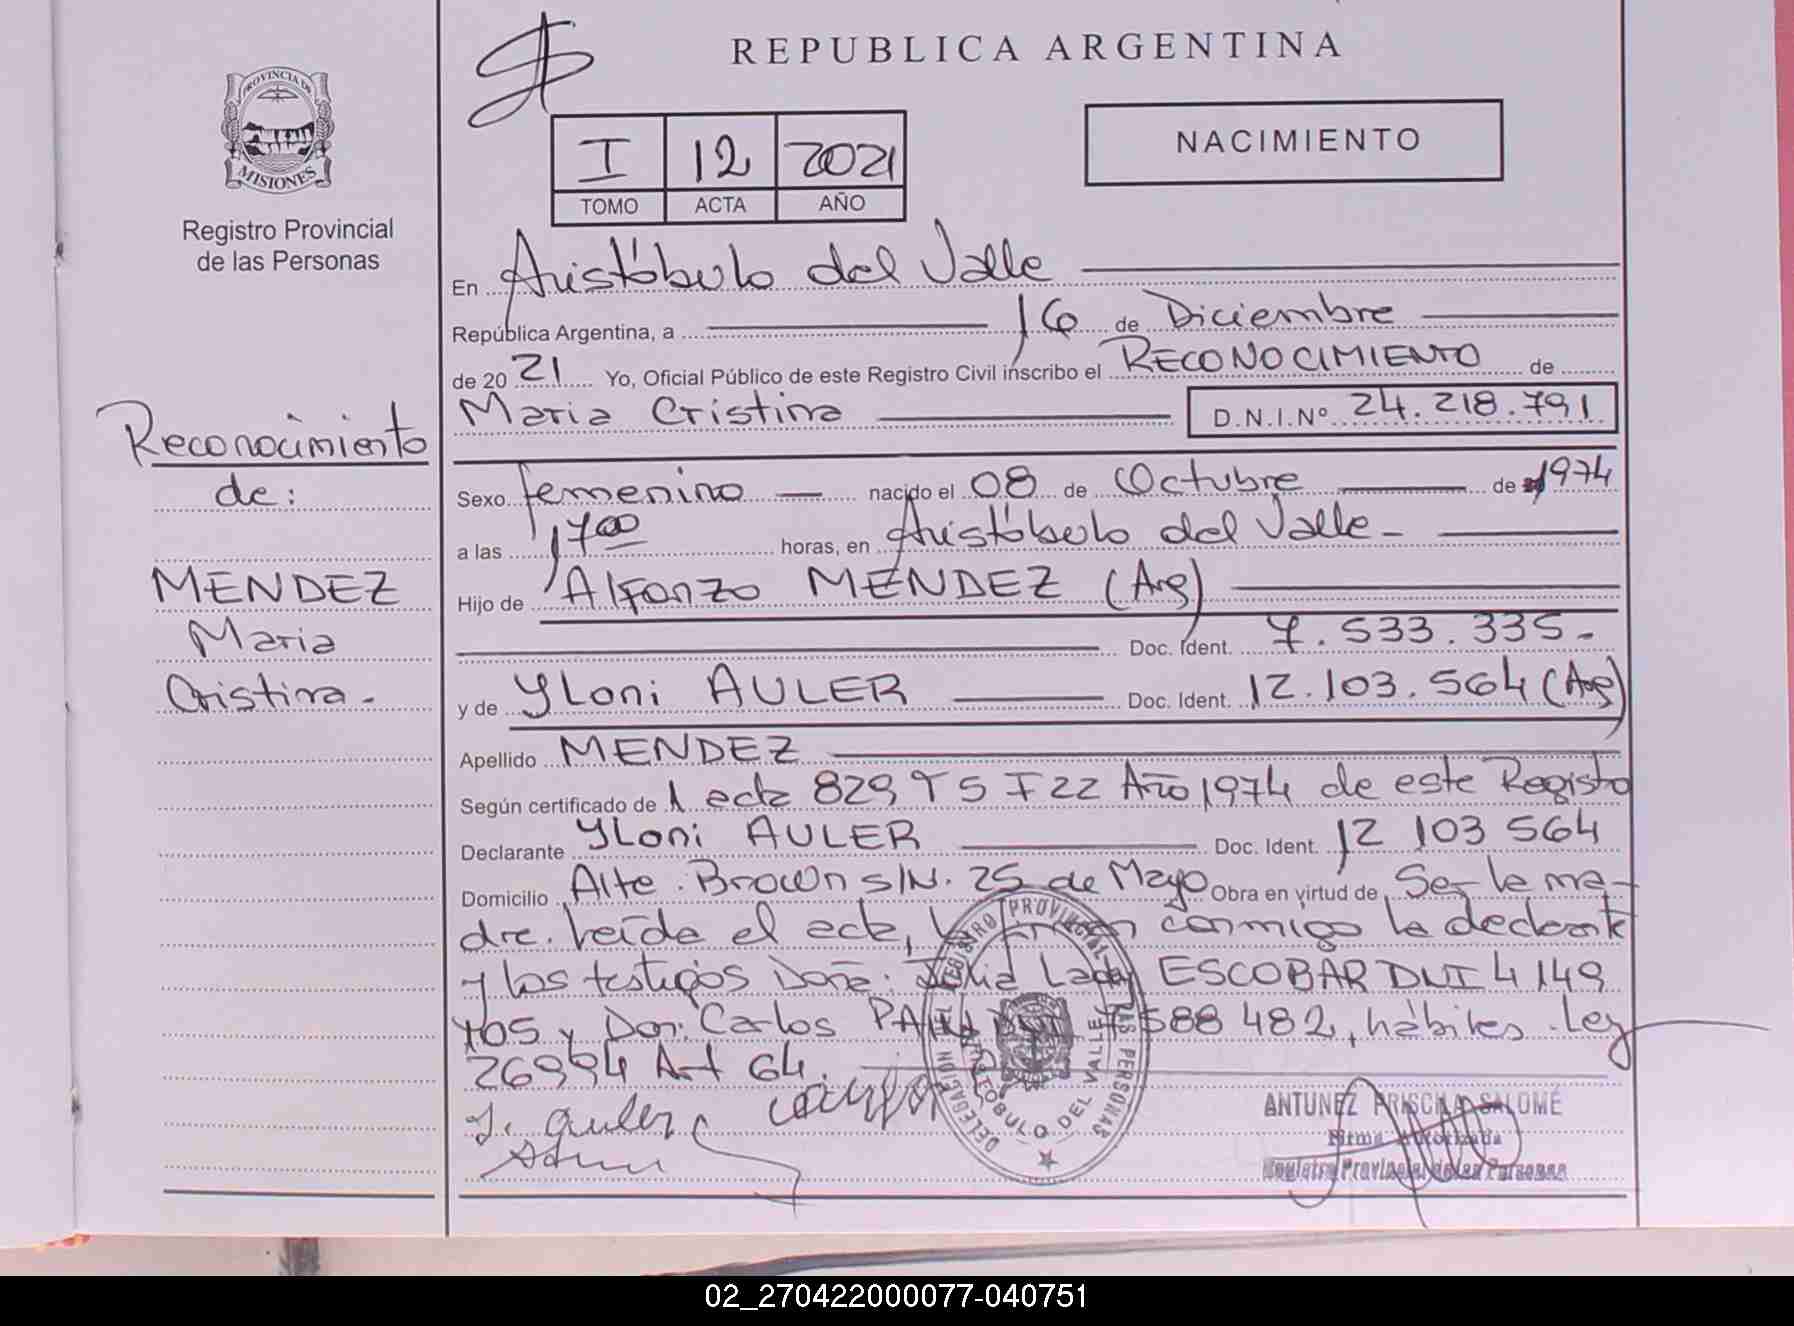 REPUBLICA ARGENTINA
PROVINCIA DE
MISIONES
Registro Provincial
de las Personas
I 12 2021
TOMO ACTA AÑO
NACIMIENTO
En Aristóbulo del Valle
República Argentina, a 16 de Diciembre
de 20 21 Yo, Oficial Público de este Registro Civil inscribo el RECONOCIMIENTO de
Maria Cristina D.N.I.Nº 24.218.791
Reconocimiento
de:
MENDEZ
Maria
Cristina.-
Sexo femenino nacido el 08 de Octubre de 1974
a las 17 00 horas, en Aristóbulo del Valle-
Hijo de Alfonzo MENDEZ (Arg)
Doc. Ident. 7.533.335.-
y de YLoni AULER Doc. Ident. 12.103.564 (Arg)
Apellido MENDEZ
Según certificado de acta 829 T 5 F 22 Año 1974 de este Registo
Declarante YLoni AULER Doc. Ident. 12 103 564
Domicilio Alte. Brown S/N. 25 de Mayo Obra en virtud de Ser la ma-
dre. Leída el acta, conmigo la declarante
y los testigos Doña: ESCOBAR DNI 4 149
105 y Don: Carlos 588 482, hábiles. Ley
26994 Art 64.
Y. auler
DELEGACION DEL REGISTRO PROVINCIAL DE LAS PERSONAS
ARISTOBULO DEL VALLE
ANTUNEZ PRISCILA SALOMÉ
Firma Autorizada
Registro Provincial de las Personas
02_270422000077-040751